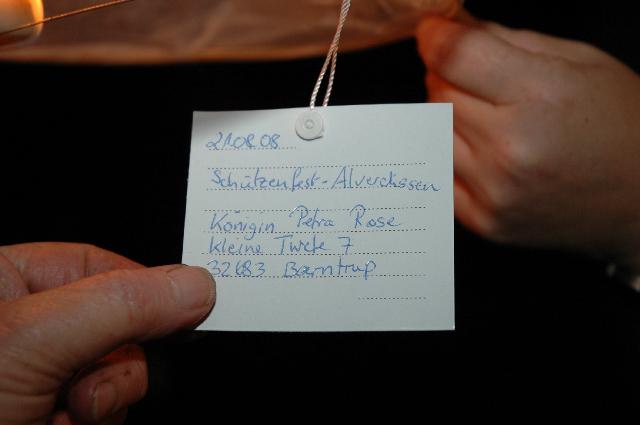 21.08.08
Schützenfest-Alverdissen
Königin Petra Rose
Kleine Twete 7
32683 Barntrup